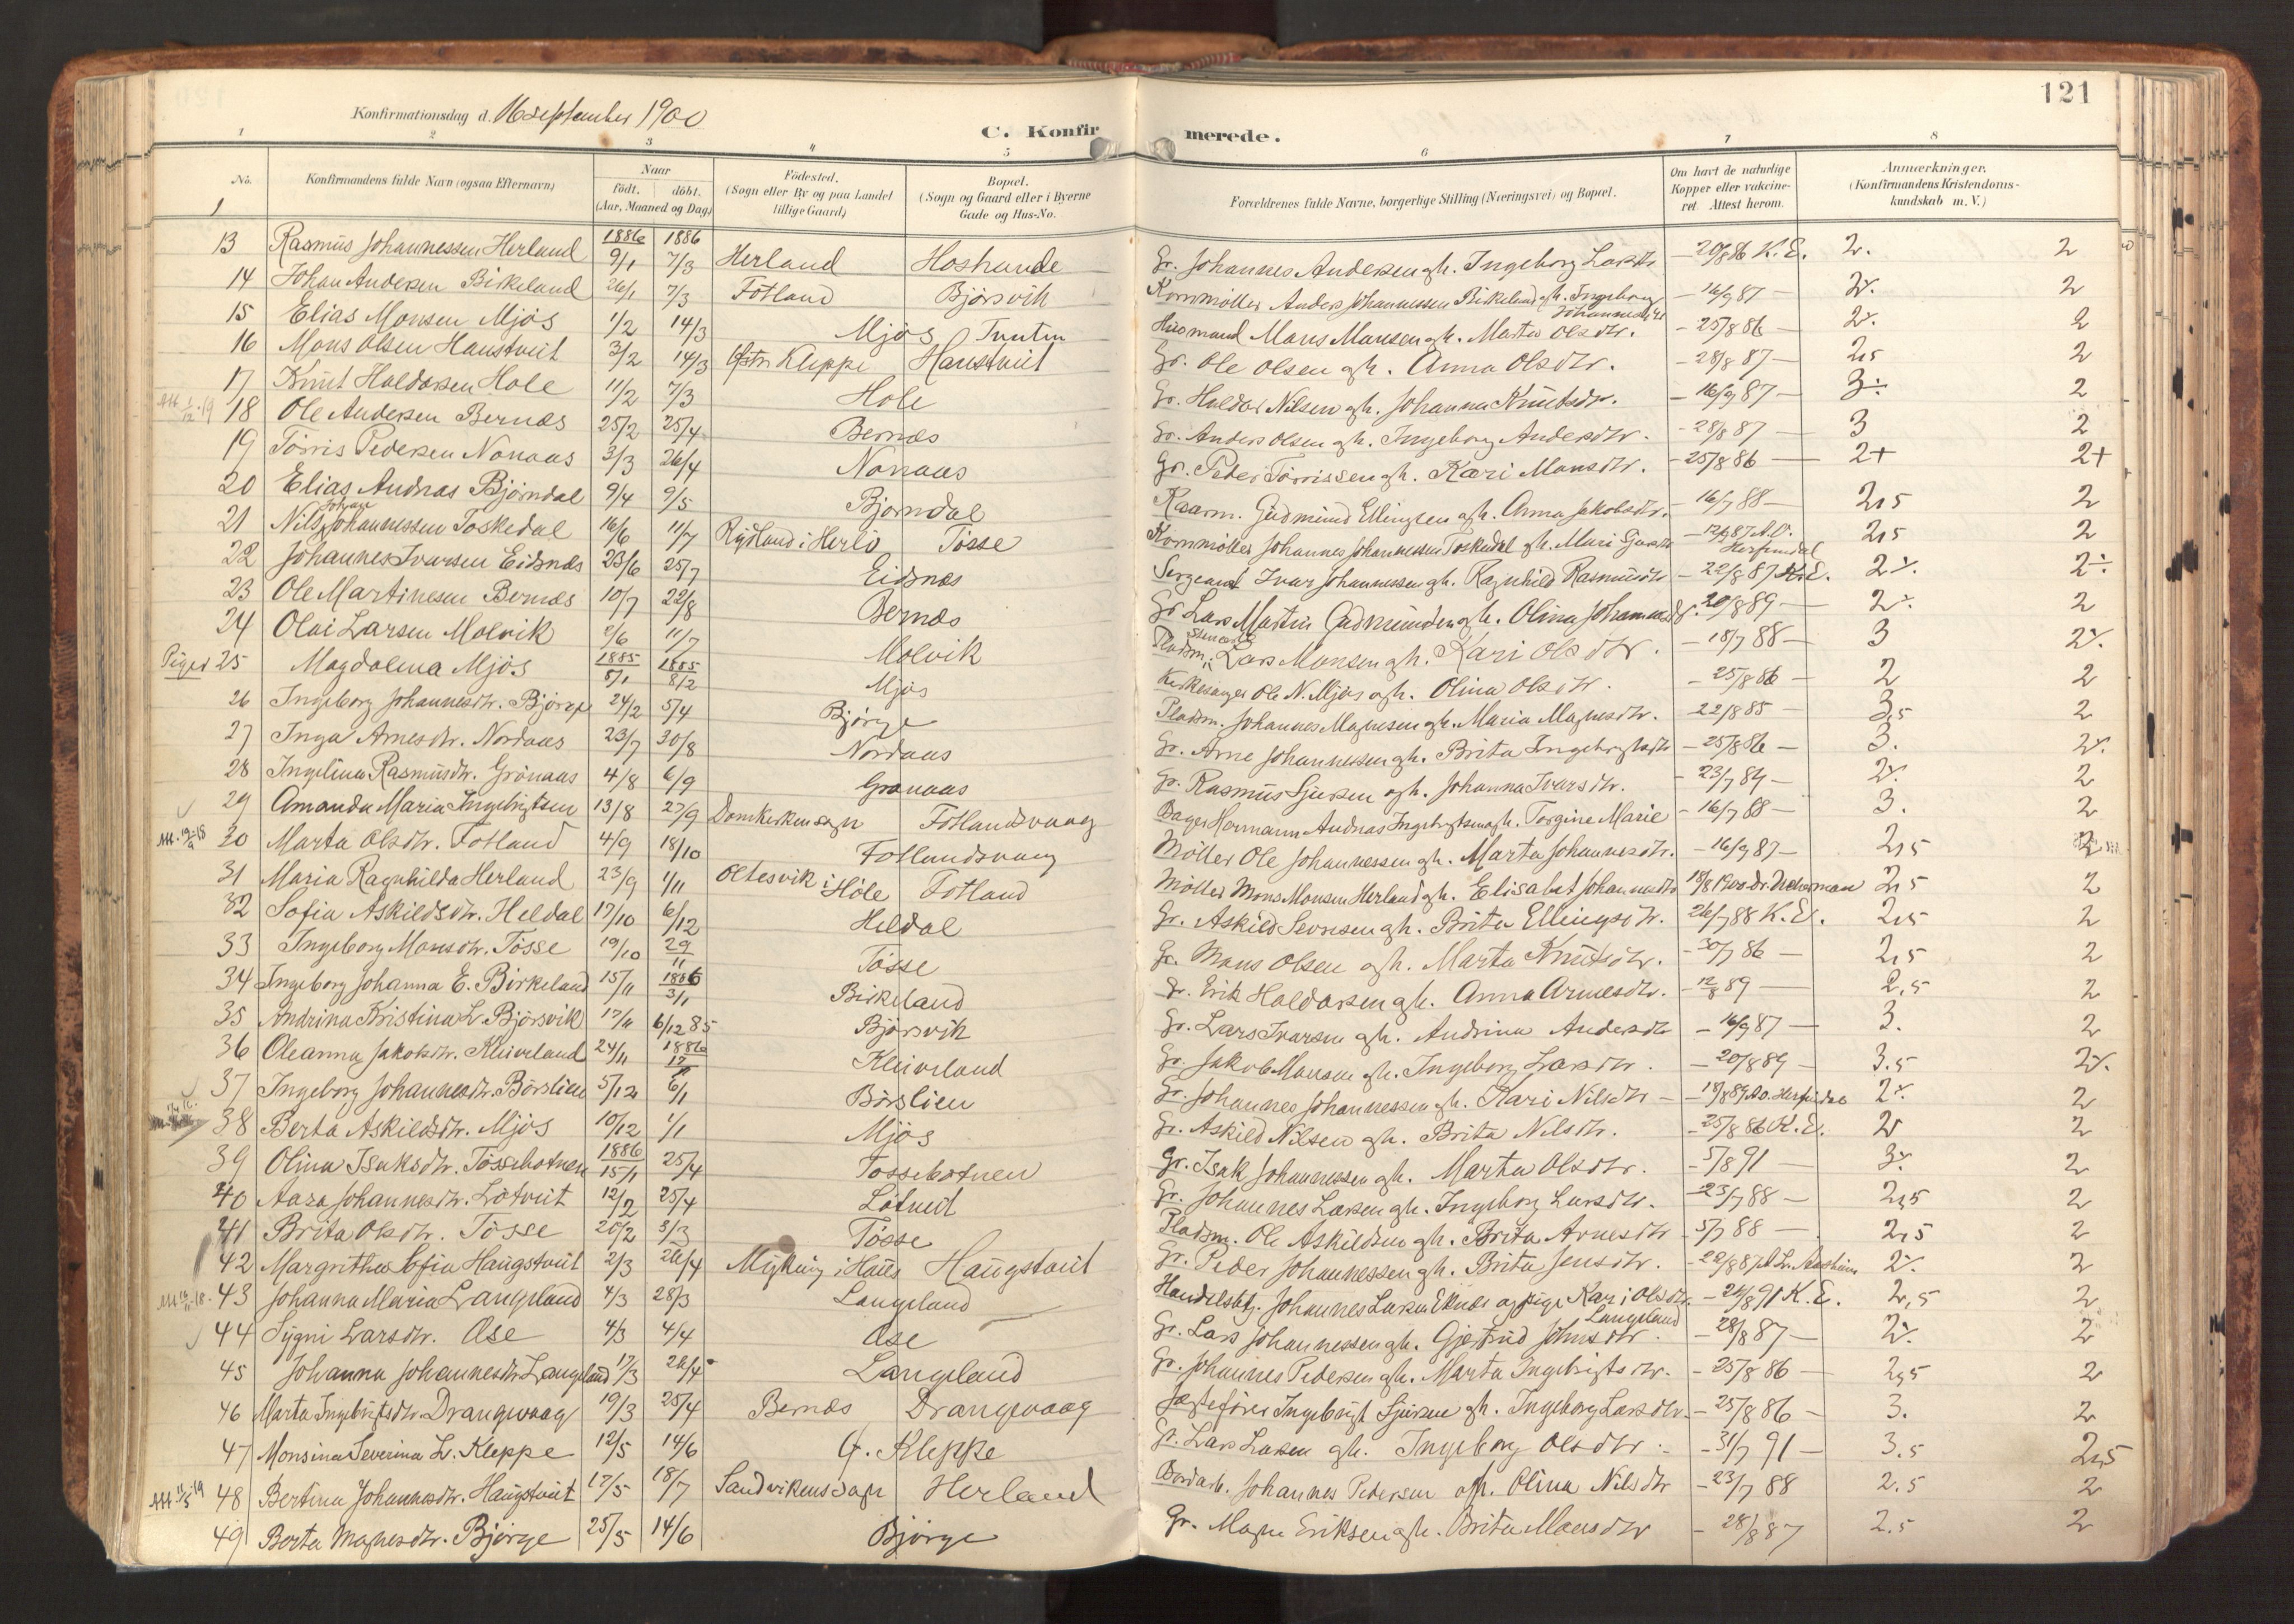 121
Konfirmationsdag d. 16 September 1900
C. Konfirmerede.
1 2 3 4 5 6 7 8
No. Konfirmandens fulde Navn (ogsaa Efternavn) Naar födt. döbt. (Aar, Maaned og Dag) Födested. (Sogn eller By og paa Landet tillige Gaard) Bopæl. (Sogn og Gaard eller i Byerne Gade og Hus-No. Forældrenes fulde Navne, borgerlige Stilling (Næringsvei) og Bopæl. Om havt de naturlige Kopper eller vakcineret. Attest herom. Anmærkninger. (Konfirmandens Kristendomskundskab m. V.)
13 Rasmus Johannessen Herland 1886 9/1 1886 7/3 Herland Hoshaude Gr. Johannes Andersen gh. Ingeborg Larsdtr 20/8 86 K.E. 2. 2
14 Johan Andersen Birkeland 26/1 7/3 Fotland Björsvik Kornmöller Anders Johannessen Birkeland gh. Ingeborg Johannesdtr - 16/9 87 - 2÷ 2
15 Elias Monsen Mjös 1/2 14/3 Mjös Tunten Husmand Mons Monsen gh. Marta Olsdtr. - 25/8 86 - 2÷ 2
16 Mons Olsen Haustveit 3/2 14/3 Östr. Kleppe Haustveit Gr. Ole Olsen gh. Anna Olsdtr. - 28/8 87 - 2,5 2
17 Knut Haldorsen Hole 11/2 7/3 Hole Gr. Haldor Nilsen gh. Johanna Knutsdtr. - 16/9 87 - 3÷ 2
18 Ole Andersen Bernæs 25/2 25/4 Bernæs Gr. Anders Olsen gh. Ingeborg Andersdtr. - 28/8 87 - 3 2
19 Törris Pedersen Nonaas 3/3 26/4 Nonaas Gr. Peder Törrissen gh. Kari Monsdtr. - 25/8 86 - 2+ 2+
20 Elias Andreas Björndal 9/4 9/5 Björndal Kaarm. Gudmund Ellingsen gh. Anna Jakobsdtr. - 16/7 88 - 2,5 2
21 Nils Johan Johannessen Toskedal 16/6 11/7 Rydland i Herlö Tösse Kornmöller Johannes Johannessen Toskedal gh. Mari - 12/9 87 A.O. Herfindal 2,5 2
22 Johannes Ivarsen Eidsnæs 23/6 25/7 Eidsnæs Sergeant Ivar Johannessen gh. Ragnhild Rasmusdtr - 22/8 87 K.E. 2÷ 2÷
23 Ole Martinesen Bernæs 10/7 22/8 Bernæs Gr. Lars Martin Gudmundsen gh. Olina Johannesdtr. 20/8 89 - 2÷ 2
24 Olai Larsen Molvik 2/6 11/7 Molvik Pladsm. Lars Monsen gh. Kari Olsdtr. - 18/7 88 - 3 2÷
Piger 25 Magdalena Mjös 1885 5/1 1885 8/2 Mjös Kirkesanger Ole N. Mjös gh. Olina Olsdtr. - 25/8 86 - 2 2
26 Ingeborg Johannesdtr. Björge 24/2 5/4 Björge Pladsm. Johannes Magnesen gh. Maria Magnesdtr. - 22/8 85 - 3,5 2
27 Inga Arnesdtr. Nordaas 23/7 30/8 Nordaas Gr. Arne Johannessen gh. Brita Ingebrigtsdtr - 25/8 86 - 3. 2÷
28 Ingelina Rasmusdtr. Grönaas 4/8 6/9 Grönaas Gr. Rasmus Sjursen gh. Johanna Ivarsdtr. - 23/7 89 - 2÷ 2
29 Amanda Maria Ingebrigtsen 13/8 27/9 Domkirkensogn Fotlandsvaag Bager Hermann Andreas Ingebrigtsen gh. Torgine Marie - 16/7 88 - 3. 2
30 Marta Olsdtr. Fotland 4/9 18/10 Fotlandsvaag Möller Ole Johannessen gh. Marta Johannesdtr. - 16/9 87 - 2,5 2
31 Maria Ragnhilda Herland 23/9 1/11 Oltesvik i Höle Fotland Möller Mons Monsen Herland gh. Elisabet Johannesdtr 2,5 2
32 Sofia Askildsdtr. Heldal 17/10 6/12 Heldal Gr. Askild Sevrsen gh. Brita Ellingsdtr. 26/7 88 K.E. 2,5 2
33 Ingeborg Monsdtr. Tösse 19/10 29/11 Tösse Gr. Mons Olsen gh. Marta Knutsdtr. - 30/7 86 - 2,5 2
34 Ingeborg Johanna E. Birkeland 15/11 1886 3/1 Birkeland Gr. Erik Haldorsen gh. Anna Arnesdtr. - 12/8 89 - 2,5 2
35 Andrina Kristina L. Björsvik 17/11 6/12 85 Björsvik Gr. Lars Ivarsen gh. Andrina Andersdtr - 16/9 87 - 3. 2
36 Oleanna Jakobsdtr. Kleiveland 24/11 1886 Kleiveland Gr. Jakob Monsen gh. Ingeborg Larsdtr. - 20/8 89 - 3.5 2÷
37 Ingeborg Johannesdtr. Börslien 5/12 6/1 Börslien Gr. Johannes Johannessen gh. Kari Nilsdtr - 2÷ 2
38 Berta Askildsdtr. Mjös 10/12 1/1 Mjös Gr. Askild Nilsen gh. Brita Nilsdtr. - 25/8 86 K.E. 2 2
39 Olina Isaksdtr. Tössebotnen 1886 15/1 25/4 Tössebotnen Gr. Isak Johannessen gh. Marta Olsdtr. - 5/8 91 - 3÷ 2
40 Aasa Johannesdtr. Lötveit 12/2 25/4 Lötveit Gr. Johannes Larsen gh. Ingeborg Larsdtr. - 23/7 88 - 2,5 2
41 Brita Olsdtr. Tösse 20/2 3/3 Tösse Pladsm. Ole Askildsen gh. Brita Arnesdtr - 5/7 88 - 2,5 2
42 Margrethe Sofia Haugstveit 2/3 26/4 Myking i Haus Haugstveit Gr. Peder Johannessen gh. Brita Jensdtr. - 22/8 87 2÷ 2
43 Johanna Maria Langeland 4/3 28/3 Langeland Handelsbtj. Johannes Larsen Eknes og pige Kari Olsdtr. Langeland - 24/8 91 K.E. 2,5 2
44 Sygni Larsdtr. Ase 4/3 4/4 Ase Gr. Lars Johannessen gh. Gjertrud Johnsdtr. - 28/8 87 - 2÷ 2
45 Johanna Johannesdtr. Langeland 17/3 26/4 Langeland Gr. Johannes Pedersen gh. Marta Ingebrigtsdtr. - 25/8 86 - 2,5 2
46 Marta Ingebrigtsdtr. Drangevaag 19/3 25/4 Bernæs Drangevaag Jægtefører Ingebrigt Sjursen gh. Ingeborg Larsdtr. - 25/8 86 - 3. 2
47 Monsina Severina L. Kleppe 12/5 14/6 Y. Kleppe Gr. Lars Larsen gh. Ingeborg Olsdtr. - 31/7 91 - 3.5 2,5
48 Bertina Johannesdtr. Haugstveit 17/5 18/7 Sandvikens sogn Herland Bordarb. Johannes Pedersen gh. Olina Nilsdtr - 23/7 88 2.5 2
49 Berta Magnesdtr. Björge 25/5 14/6 Björge Gr. Magne Eriksen gh. Brita Monsdtr - 28/8 87 2.5 2